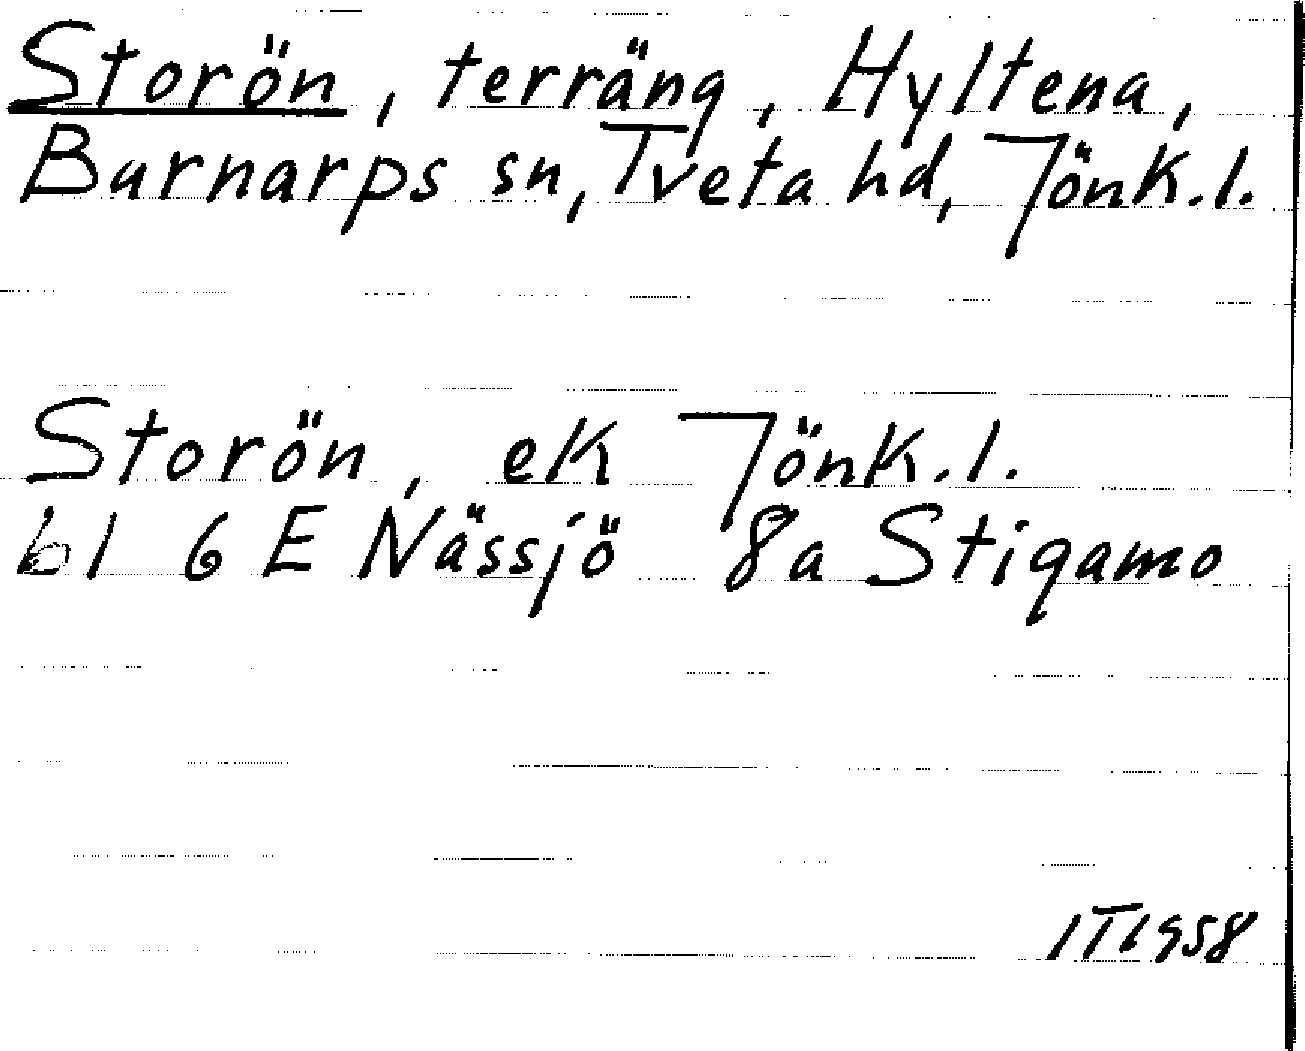 Storön, terräng, Hyltena,
Barnarps sn, Tveta hd, Jönk.l.
Storön, ek Jönk.l.
bl 6 E Nässjö 8a Stigamo
IT1958